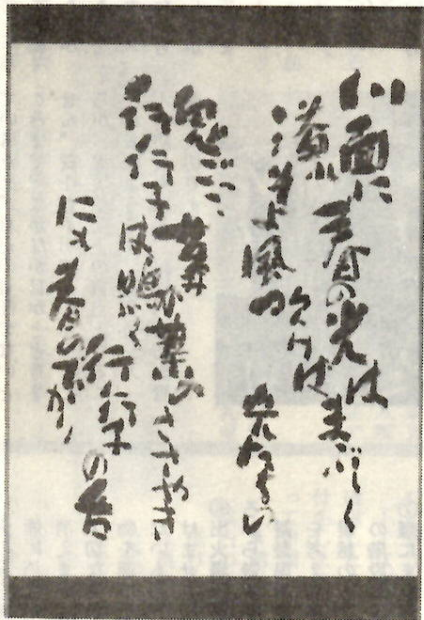 川面に春の光はまぶしく
溢れ
そよ風が吹けば光たちの
鬼ごっこ、葦の葉のささやき
行行子は鳴く行行子の舌
にも春のひかり